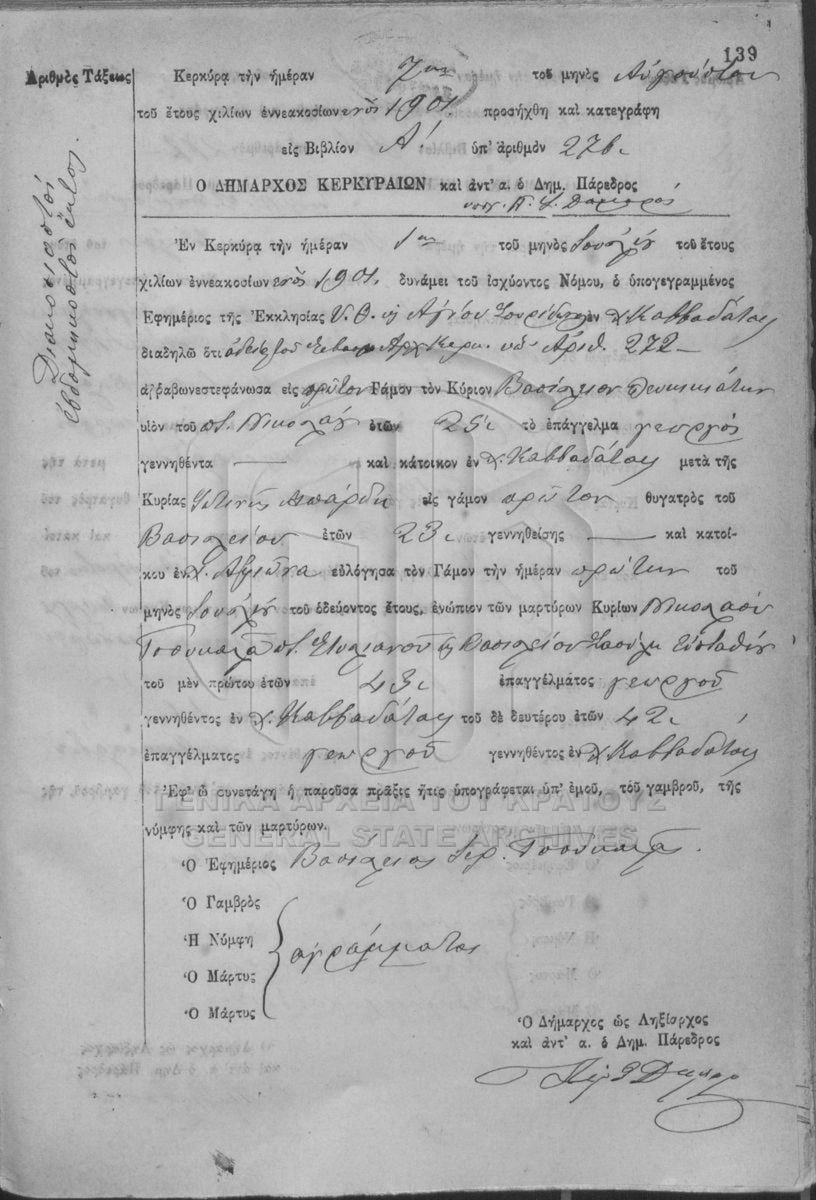 139
Ἀριθμὸς Τάξεως
Διακοσιοστός
ἑβδομηκοστός ἕκτος.
Κερκύρᾳ τὴν ἡμέραν 7ην τοῦ μηνὸς Αὐγούστου
τοῦ ἔτους χιλίων ἐννεακοσίων ἑνός 1901 προσήχθη καὶ κατεγράφη
εἰς Βιβλίον Α′ ὑπ' ἀριθμὸν 276
Ὁ ΔΗΜΑΡΧΟΣ ΚΕΡΚΥΡΑΙΩΝ καὶ ἀντ' α. ὁ Δημ. Πάρεδρος
Ἐν Κερκύρᾳ τὴν ἡμέραν 1ην τοῦ μηνὸς Ἰουλίου τοῦ ἔτους
χιλίων ἐννεακοσίων ἑνός 1901. δυνάμει τοῦ ἰσχύοντος Νόμου, ὁ ὑπογεγραμμένος
Ἐφημέριος τῆς Ἐκκλησίας Υ. Θ. Ἁγίου ἐν χ. Καββαδάταις
διαδηλῶ ὅτι ἀδείᾳ τοῦ Ἀρχ. Κερκ. ὑπ' Ἀριθ. 272
ἀῤῥαβωνεστεφάνωσα εἰς πρῶτον Γάμον τὸν Κύριον Βασίλειον
υἱὸν τοῦ π. Νικολάου ἐτῶν 25 τὸ ἐπάγγελμα γεωργός
γεννηθέντα — καὶ κάτοικον ἐν χ. Καββαδάταις μετὰ τῆς
Κυρίας Φωτεινῆς Μπάρδη εἰς γάμον πρῶτον θυγατρὸς τοῦ
Βασιλείου ἐτῶν 23 γεννηθείσης — καὶ κατοί-
κου ἐν χ. Ἀφιῶνα εὐλόγησα τὸν Γάμον τὴν ἡμέραν πρώτην τοῦ
μηνὸς Ἰουλίου τοῦ ὁδεύοντος ἔτους, ἐνώπιον τῶν μαρτύρων Κυρίων Νικολάου
Τσουκαλᾶ π. Στυλιανοῦ ἢ Βασιλείου Σαούλη Εὐσταθίου
τοῦ μὲν πρώτου ἐτῶν 43 ἐπαγγέλματος γεωργοῦ
γεννηθέντος ἐν χ. Καββαδάταις τοῦ δὲ δευτέρου ἐτῶν 42
ἐπαγγέλματος γεωργοῦ γεννηθέντος ἐν χ. Καββαδάταις
Ἐφ' ᾧ συνετάγη ἡ παροῦσα πρᾶξις ἥτις ὑπογράφεται ὑπ' ἐμοῦ, τοῦ γαμβροῦ, τῆς
νύμφης καὶ τῶν μαρτύρων.
ΓΕΝΙΚΑ ΑΡΧΕΙΑ ΤΟΥ ΚΡΑΤΟΥΣ
GENERAL STATE ARCHIVES
Ὁ Ἐφημέριος Βασίλειος Ἱερ. Τσουκαλᾶς.
Ὁ Γαμβρὸς
Ἡ Νύμφη ἀγράμματοι
Ὁ Μάρτυς
Ὁ Μάρτυς
Ὁ Δήμαρχος ὡς Ληξίαρχος
καὶ ἀντ' α. ὁ Δημ. Πάρεδρος